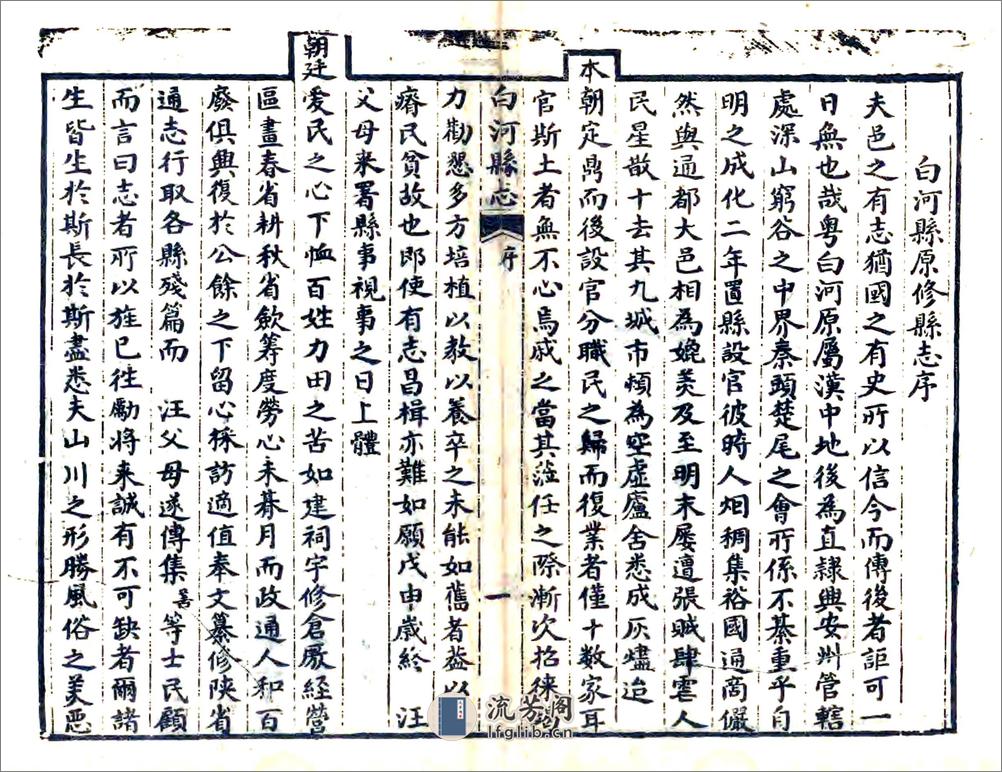 白河縣原修縣志序
夫邑之有志猶國之有史所以信今而傳後者詎可一
日無也哉粵白河原屬漢中地後為直隸興安州管轄
處深山窮谷之中界秦頭楚尾之會所係不綦重乎自
明之成化二年置縣設官彼時人烟稠集裕國通商儼
然與通都大邑相為媲美及至明末屢遭張賊肆虐人
民星散十去其九城市頓為空虛廬舍悉成灰燼迨
本朝定鼎而後設官分職民之歸而復業者僅十数家耳
官斯土者無不心焉戚之當其涖任之際漸次招徠
白河縣志
序
一
力勸懇多方培植以教以養卒之未能如舊者葢以
瘠民貧故也即使有志昌楫亦難如願戊申歲終 汪
父母来署縣事視事之日上體
朝廷愛民之心下恤百姓力田之苦如建祠宇修倉厫經營
區畫春省耕秋省歛籌度勞心未朞月而政通人和百
廢俱興復於公餘之下留心採訪適值奉文纂修陝省
通志行取各縣殘篇而 汪父母遂傳集 等士民顧
而言曰志者所以旌已徃勵將来誠有不可缺者爾諸
生皆生於斯長於斯盡悉夫山川之形勝風俗之美惡
流芳阁
lfglib.cn